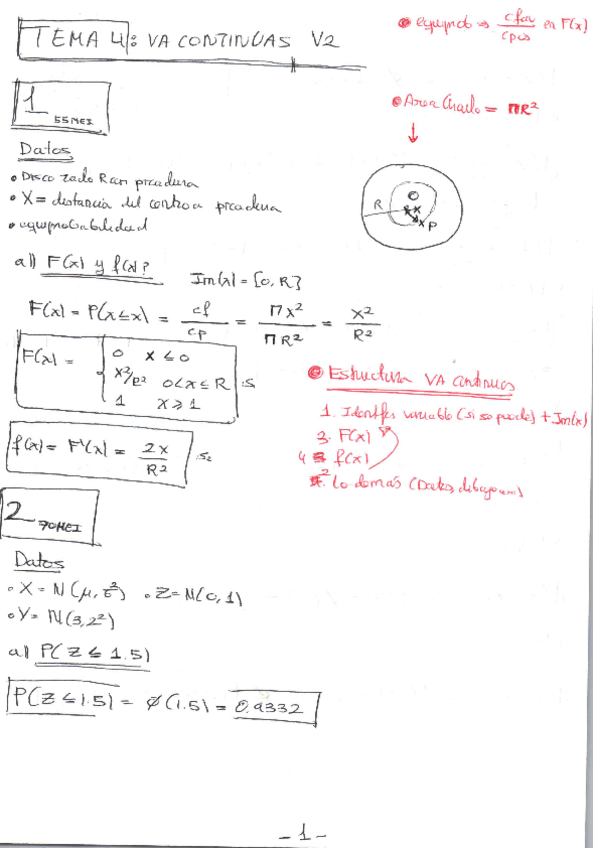 TEMA 4: VA CONTINUAS V2
• equiprob ⇒ cfav/cpos en F(x)
1 55MEI
• Area Circulo = πR²
↓
Datos
• Disco radio R con picadura
• X = distancia del centro a picadura
• equiprobabilidad
R
O
x
P
a)) F(x) y f(x)?
Im(x) = [0, R]
F(x) = P(X ≤ x) = cf/cp = πx²/πR² = x²/R²
F(x) =
0 x ≤ 0
x²/R² 0 < x ≤ R
1 x ≥ 1
f(x) = F'(x) = 2x/R²
• Estructura VA continuas
1. Identifes variable (si se puede) + Im(x)
3. F(x)
4 f(x)
2 Lo demás
2 70MEI
Datos
• X = N(μ, σ²) • Z = N(0, 1)
• Y = N(3, 2²)
a)) P(Z ≤ 1.5)
P(Z ≤ 1.5) = ϕ(1.5) = 0.9332
- 1 -